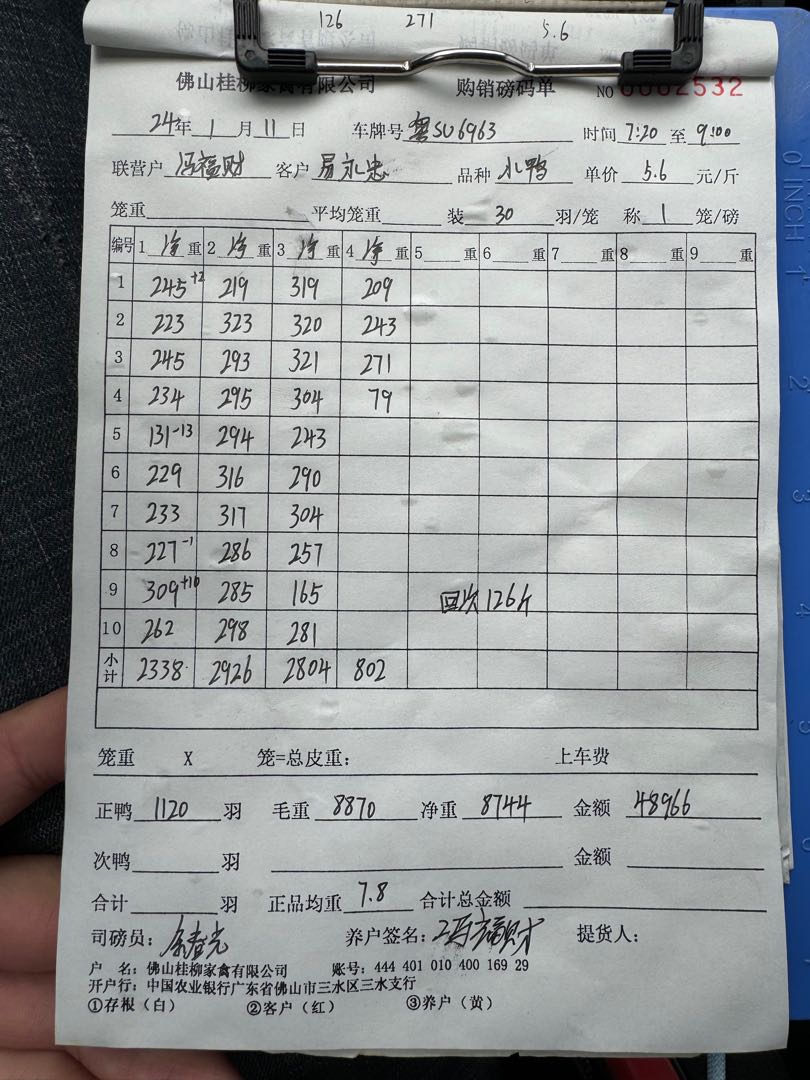 126 271 5.6
佛山桂柳家禽有限公司 购销磅码单 NO 0002532
24年 1 月 11 日 车牌号 粤SU6963 时间 7:20 至 9:00
联营户 冯福财 客户 易永忠 品种 小鸭 单价 5.6 元/斤
笼重 平均笼重 装 30 羽/笼 称 1 笼/磅
编号 1 净 重 2 净 重 3 净 重 4 净 重 5 重 6 重 7 重 8 重 9 重
1 245 +2 219 319 209
2 223 323 320 243
3 245 293 321 271
4 234 295 304 79
5 131 -13 294 243
6 229 316 290
7 233 317 304
8 227 -1 286 257
9 309 +10 285 165 回次 126斤
10 262 298 281
小计 2338 2926 2804 802
笼重 X 笼=总皮重： 上车费
正鸭 1120 羽 毛重 8870 净重 8744 金额 48966
次鸭 羽 金额
合计 羽 正品均重 7.8 合计总金额
司磅员： 养户签名：冯福财 提货人：
户 名：佛山桂柳家禽有限公司 账号：444 401 010 400 169 29
开户行：中国农业银行广东省佛山市三水区三水支行
①存根（白） ②客户（红） ③养户（黄）
0 INCH 1
2
3
4
5